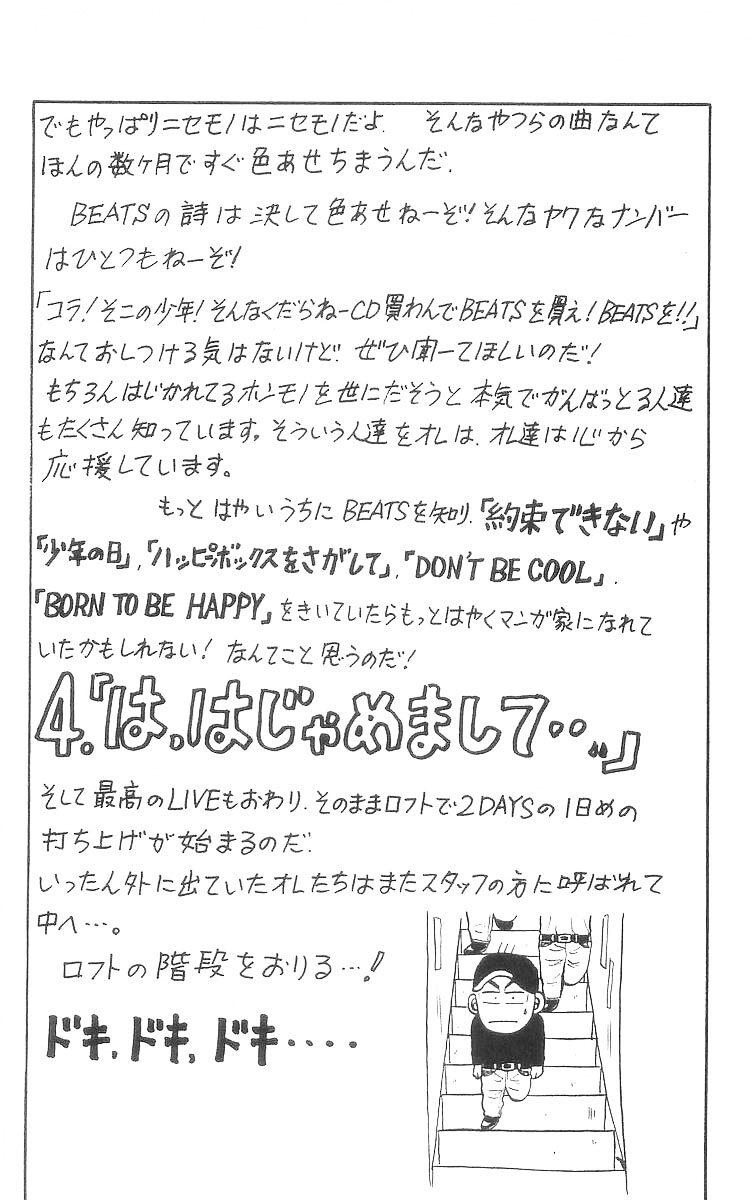 でもやっぱりニセモノはニセモノだよ. そんなやつらの曲なんて
ほんの数ヶ月ですぐ色あせちまうんだ.
BEATSの詩は決して色あせねーぞ!そんなヤクなナンバー
はひとつもねーぞ!
「コラ!そこの少年!そんなくだらねーCD買わんでBEATSを買え!BEATSを!!」
なんておしつける気はないけど. ぜひ聞ーてほしいのだ!
もちろんはじかれてるホンモノを世にだそうと本気でがんばっとる人達
もたくさん知っています。そういう人達をオレは、オレ達は心から
応援しています。
もっとはやいうちにBEATSを知り.「約束できない」や
「少年の日」,「ハッピーボックスをさがして」,「DON'T BE COOL」.
「BORN TO BE HAPPY」をきいていたらもっとはやくマンガ家になれて
いたかもしれない! なんてこと思うのだ!
4.「は、はじゃめまして・・・」
そして最高のLIVEもおわり. そのままロフトで2DAYSの1日めの
打ち上げが始まるのだ.
いったん外に出ていたオレたちはまたスタッフの方に呼ばれて
中へ…。
ロフトの階段をおりる…!
ドキ,ドキ,ドキ・・・・